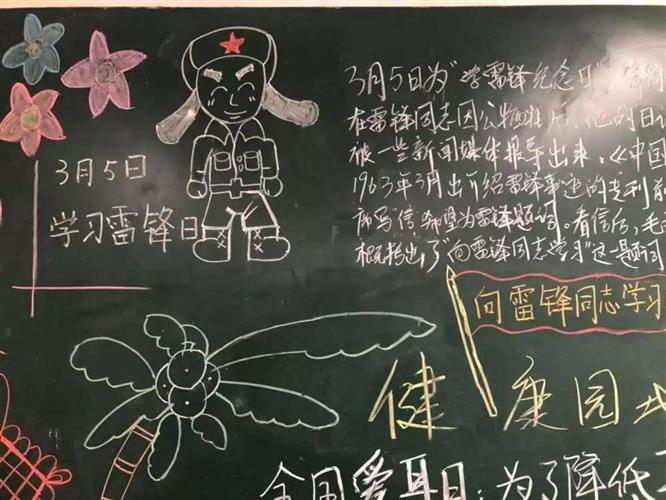 3月5日
学习雷锋日
3月5日为"学雷锋纪念日"
在雷锋同志因公牺牲后,他的日
被一些新闻媒体报导出来,《中国
1963年3月出介绍雷锋事迹的专刊
写信希望为雷锋题词。看信后,毛
概括出了"向雷锋同志学习"这一题词
向雷锋同志学习
健康园
全国爱耳日:为了降低